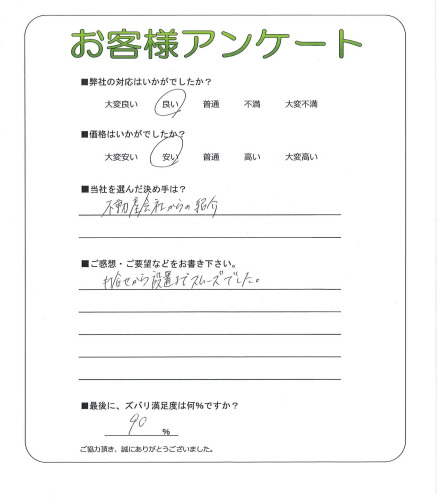 お客様アンケート
■弊社の対応はいかがでしたか?
大変良い 良い 普通 不満 大変不満
■価格はいかがでしたか?
大変安い 安い 普通 高い 大変高い
■当社を選んだ決め手は?
不動産会社からの紹介
■ご感想・ご要望などをお書き下さい。
打合せから設置までスムーズでした。
■最後に、ズバリ満足度は何%ですか?
90 %
ご協力頂き、誠にありがとうございました。